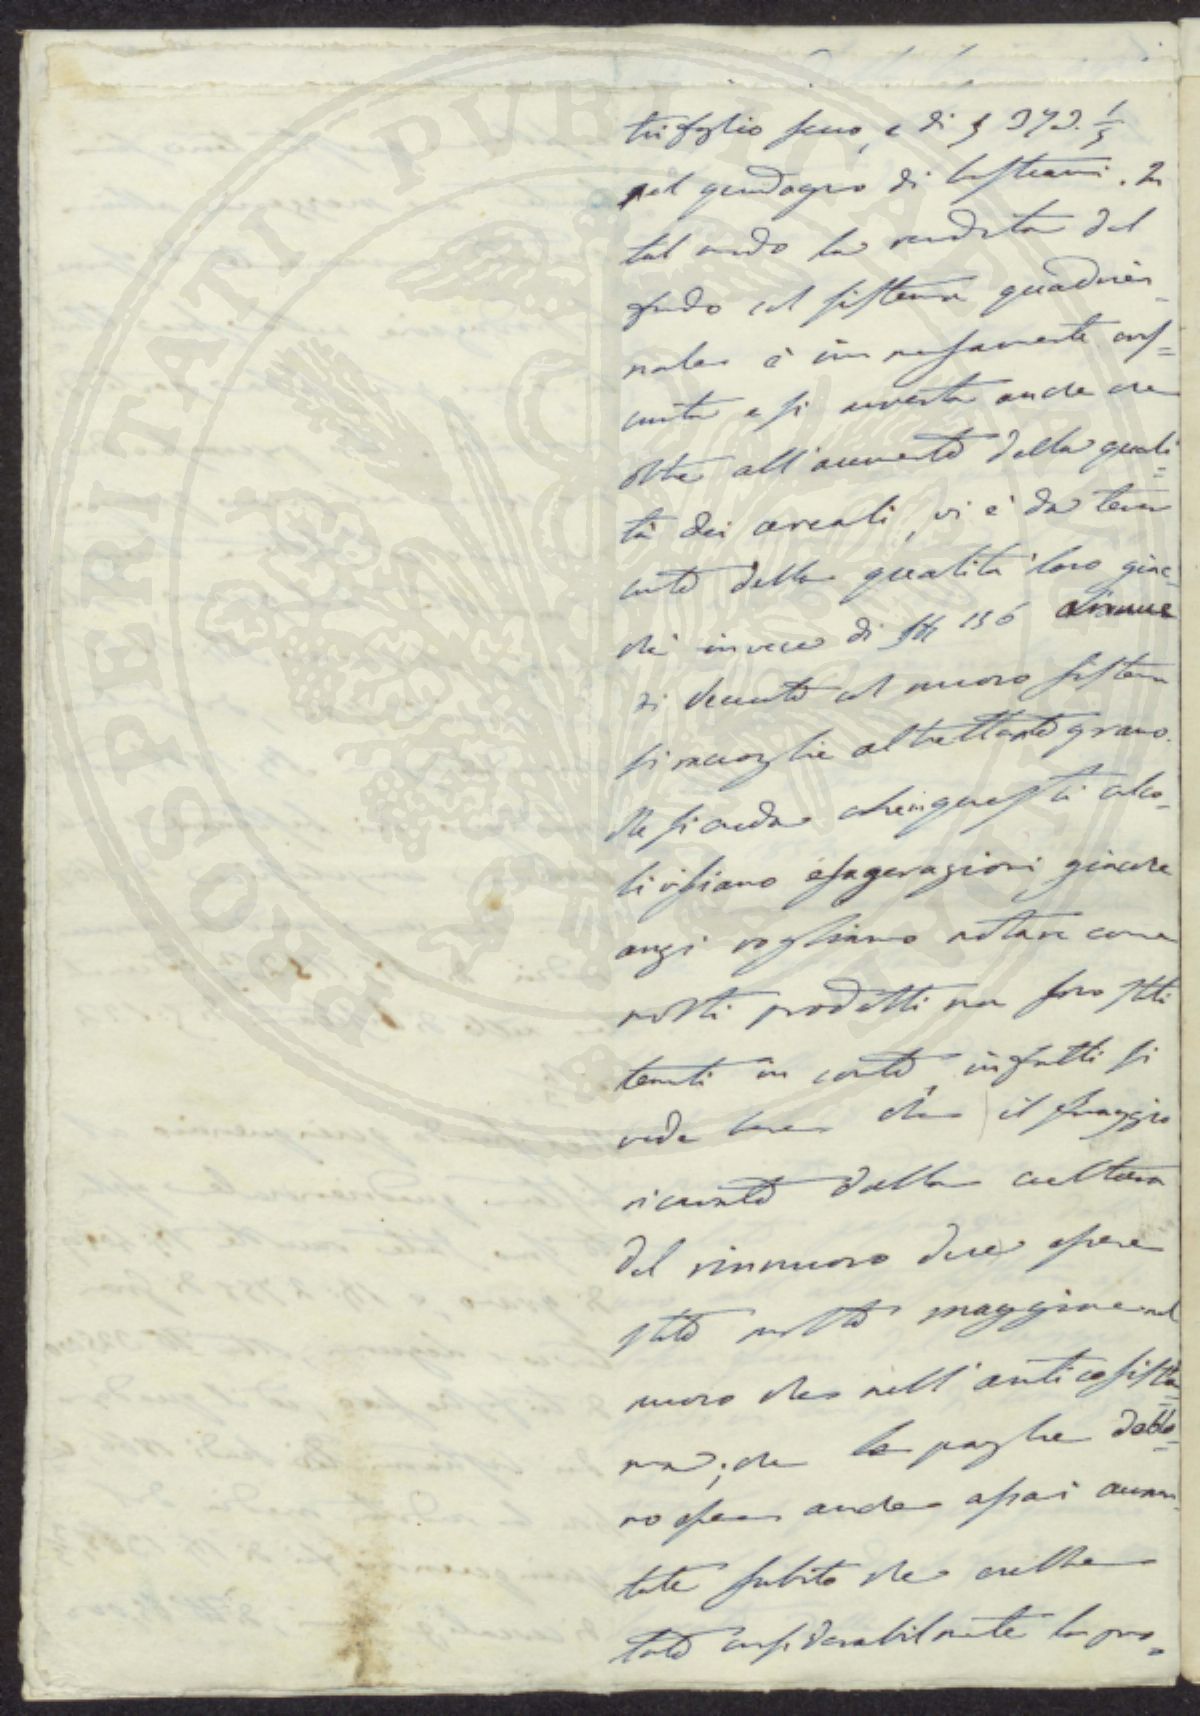 PROSPERITATI PUBLICAE AUGENDAE
trifoglio secco, e di 373. 1/5
nel guadagno di bestiami. In
tal modo la rendita del
fondo col sistema quadrien-
nale è immensamente cres=
ciuta e si avverta anche che
oltre all'aumento della quali=
tà dei cereali, vi è da tener
conto della qualità loro giac-
chè invece di 156
si raccoglie altrettanto grano.
Nè si creda che in questi calco-
li vi siano esagerazioni giacchè
anzi vogliamo notare come
molti prodotti non sono stati
tenuti in conto, infatti si
vede bene che il foraggio
ricavato dalla coltura
del rinnuovo deve essere
stato molto maggiore nel
nuovo che nell'antico siste=
ma; che le paglie debbo-
no essere anche assai aumen-
tate subito che crebbe
tanto considerabilmente la pro-